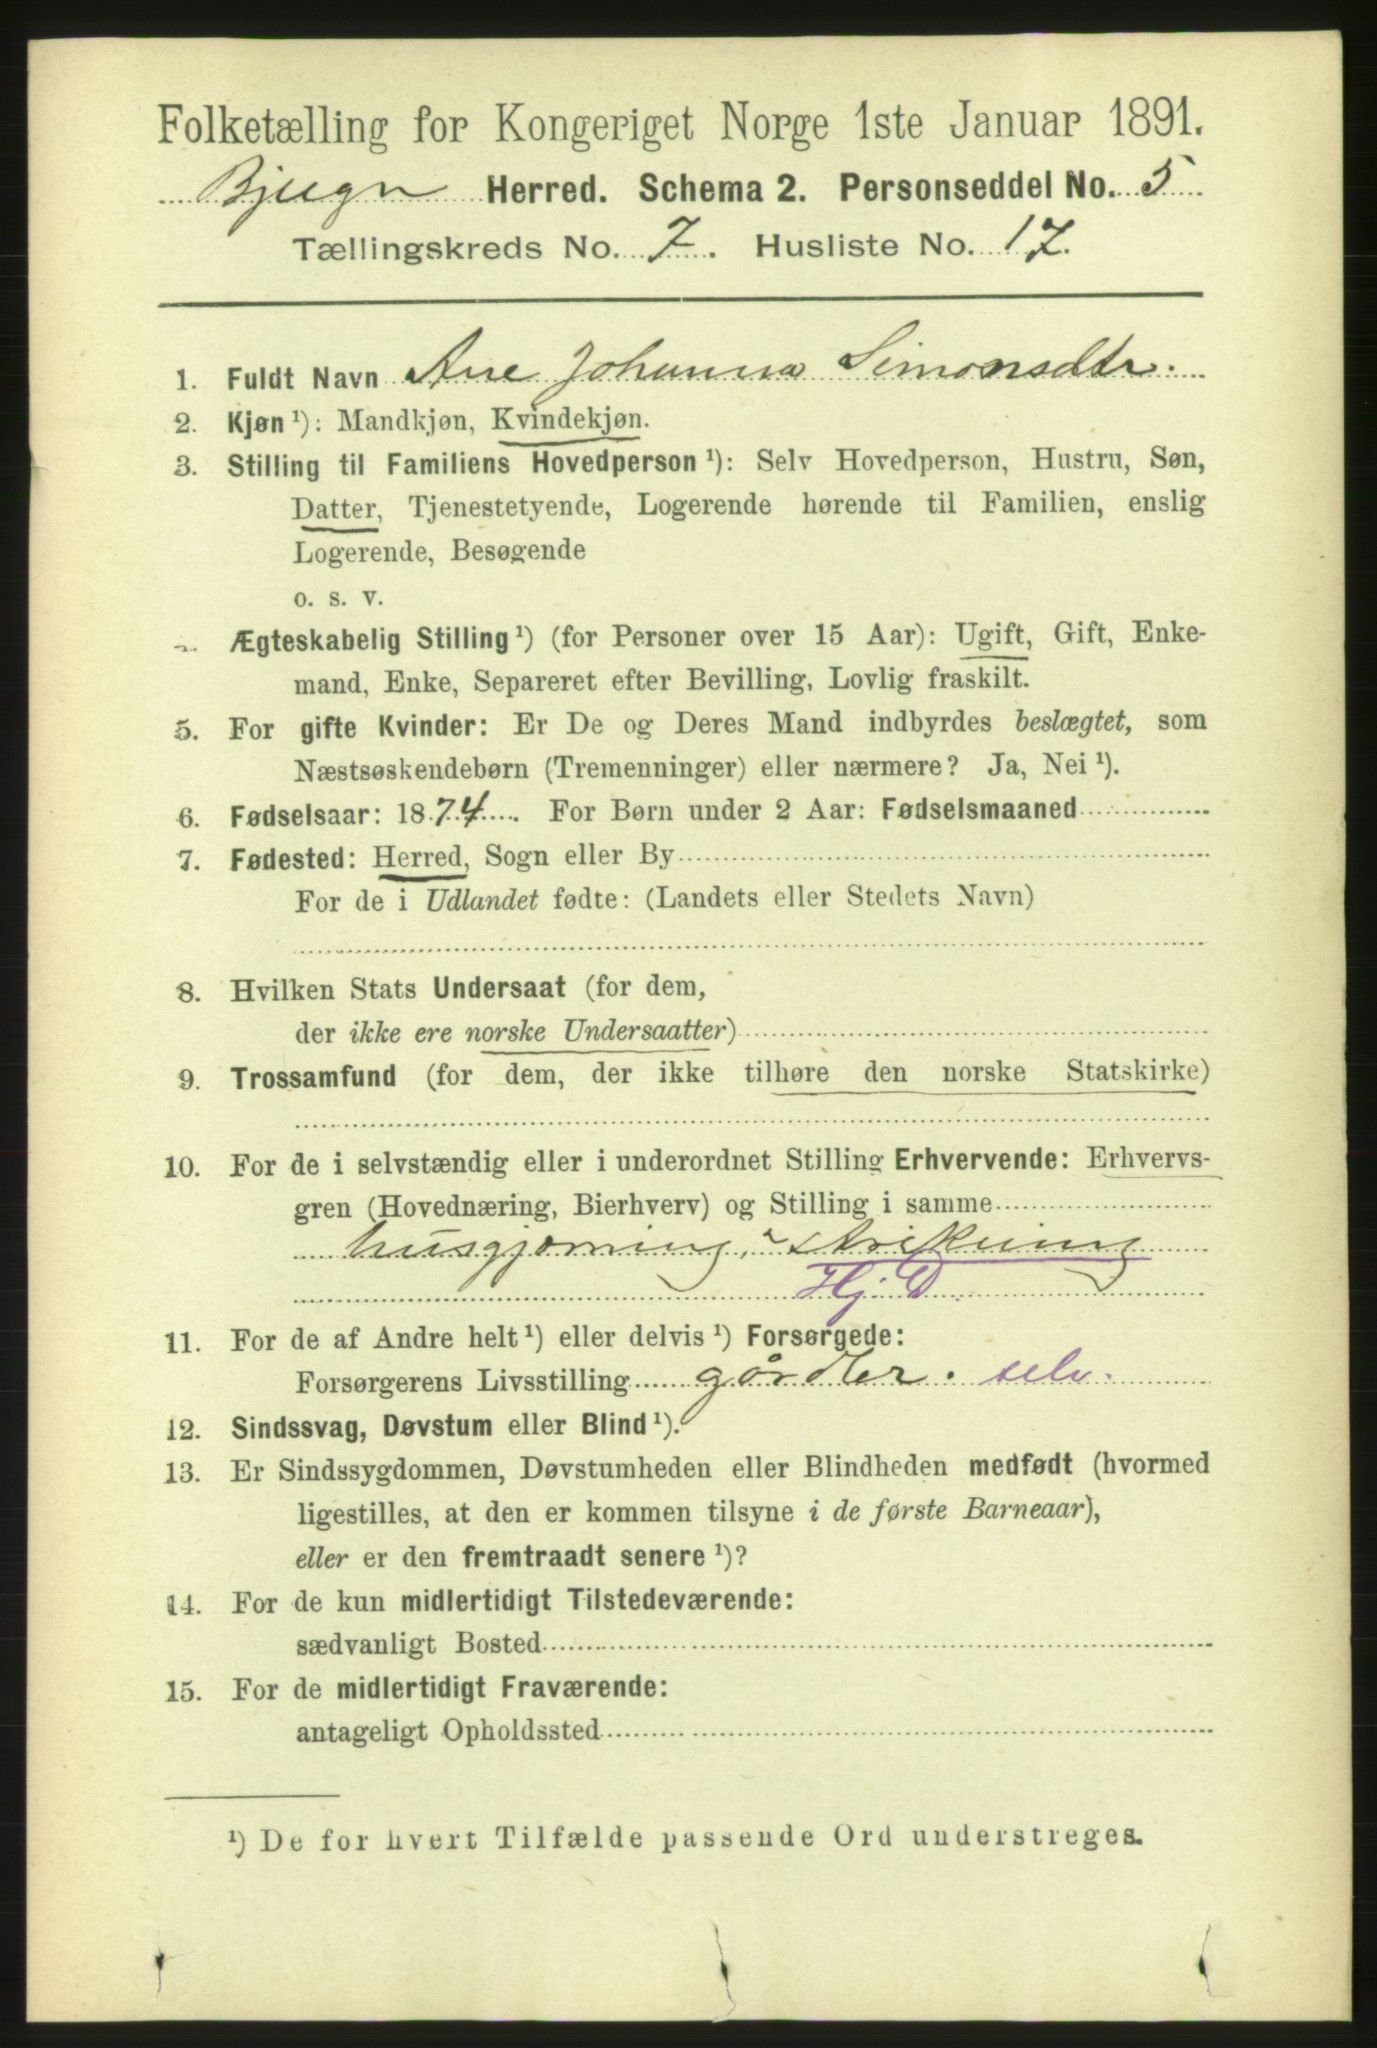 Folketælling for Kongeriget Norge 1ste Januar 1891.
Bjugn Herred. Schema 2. Personseddel No. 5
Tællingskreds No. 7. Husliste No. 17.
1. Fuldt Navn Ane Johanna Simonsdtr.
2. Kjøn ¹): Mandkjøn, Kvindekjøn.
3. Stilling til Familiens Hovedperson ¹): Selv Hovedperson, Hustru, Søn,
Datter, Tjenestetyende, Logerende hørende til Familien, enslig
Logerende, Besøgende
o. s. v.
Ægteskabelig Stilling ¹) (for Personer over 15 Aar): Ugift, Gift, Enke-
mand, Enke, Separeret efter Bevilling, Lovlig fraskilt.
5. For gifte Kvinder: Er De og Deres Mand indbyrdes beslægtet, som
Næstsøskendebørn (Tremenninger) eller nærmere? Ja, Nei ¹).
6. Fødselsaar: 1874. For Børn under 2 Aar: Fødselsmaaned
7. Fødested: Herred, Sogn eller By
For de i Udlandet fødte: (Landets eller Stedets Navn)
8. Hvilken Stats Undersaat (for dem,
der ikke ere norske Undersaatter)
9. Trossamfund (for dem, der ikke tilhøre den norske Statskirke)
10. For de i selvstændig eller i underordnet Stilling Erhvervende: Erhvervs-
gren (Hovednæring, Bierhverv) og Stilling i samme
husgjørning, strikning
Hj. D.
11. For de af Andre helt ¹) eller delvis ¹) Forsørgede:
Forsørgerens Livsstilling gårdbr. selv.
12. Sindssvag, Døvstum eller Blind ¹).
13. Er Sindssygdommen, Døvstumheden eller Blindheden medfødt (hvormed
ligestilles, at den er kommen tilsyne i de første Barneaar),
eller er den fremtraadt senere ¹)?
14. For de kun midlertidigt Tilstedeværende:
sædvanligt Bosted
15. For de midlertidigt Fraværende:
antageligt Opholdssted
¹) De for hvert Tilfælde passende Ord understreges.